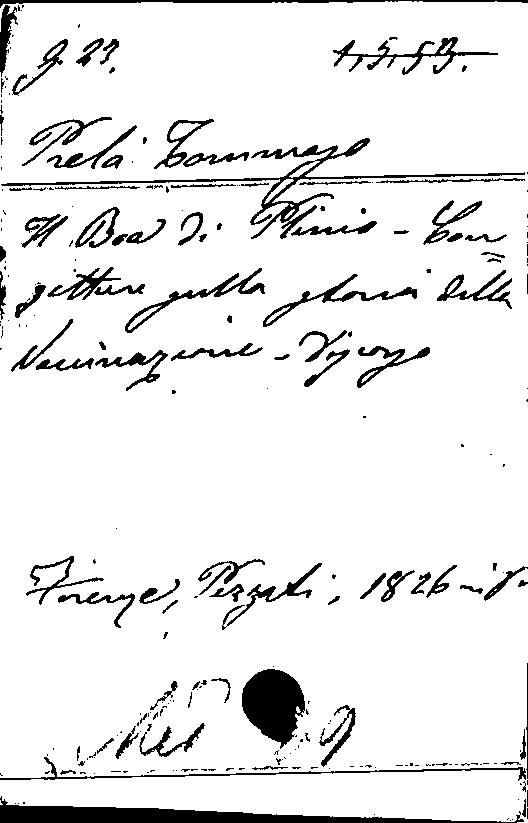 g. 23. 1,5,53.
Prelà Tommaso
Il Boa di Plinio - Con=
getture sulla storia della
Vaccinazione - Discorso
Firenze, Pezzati, 1826 - in 8.